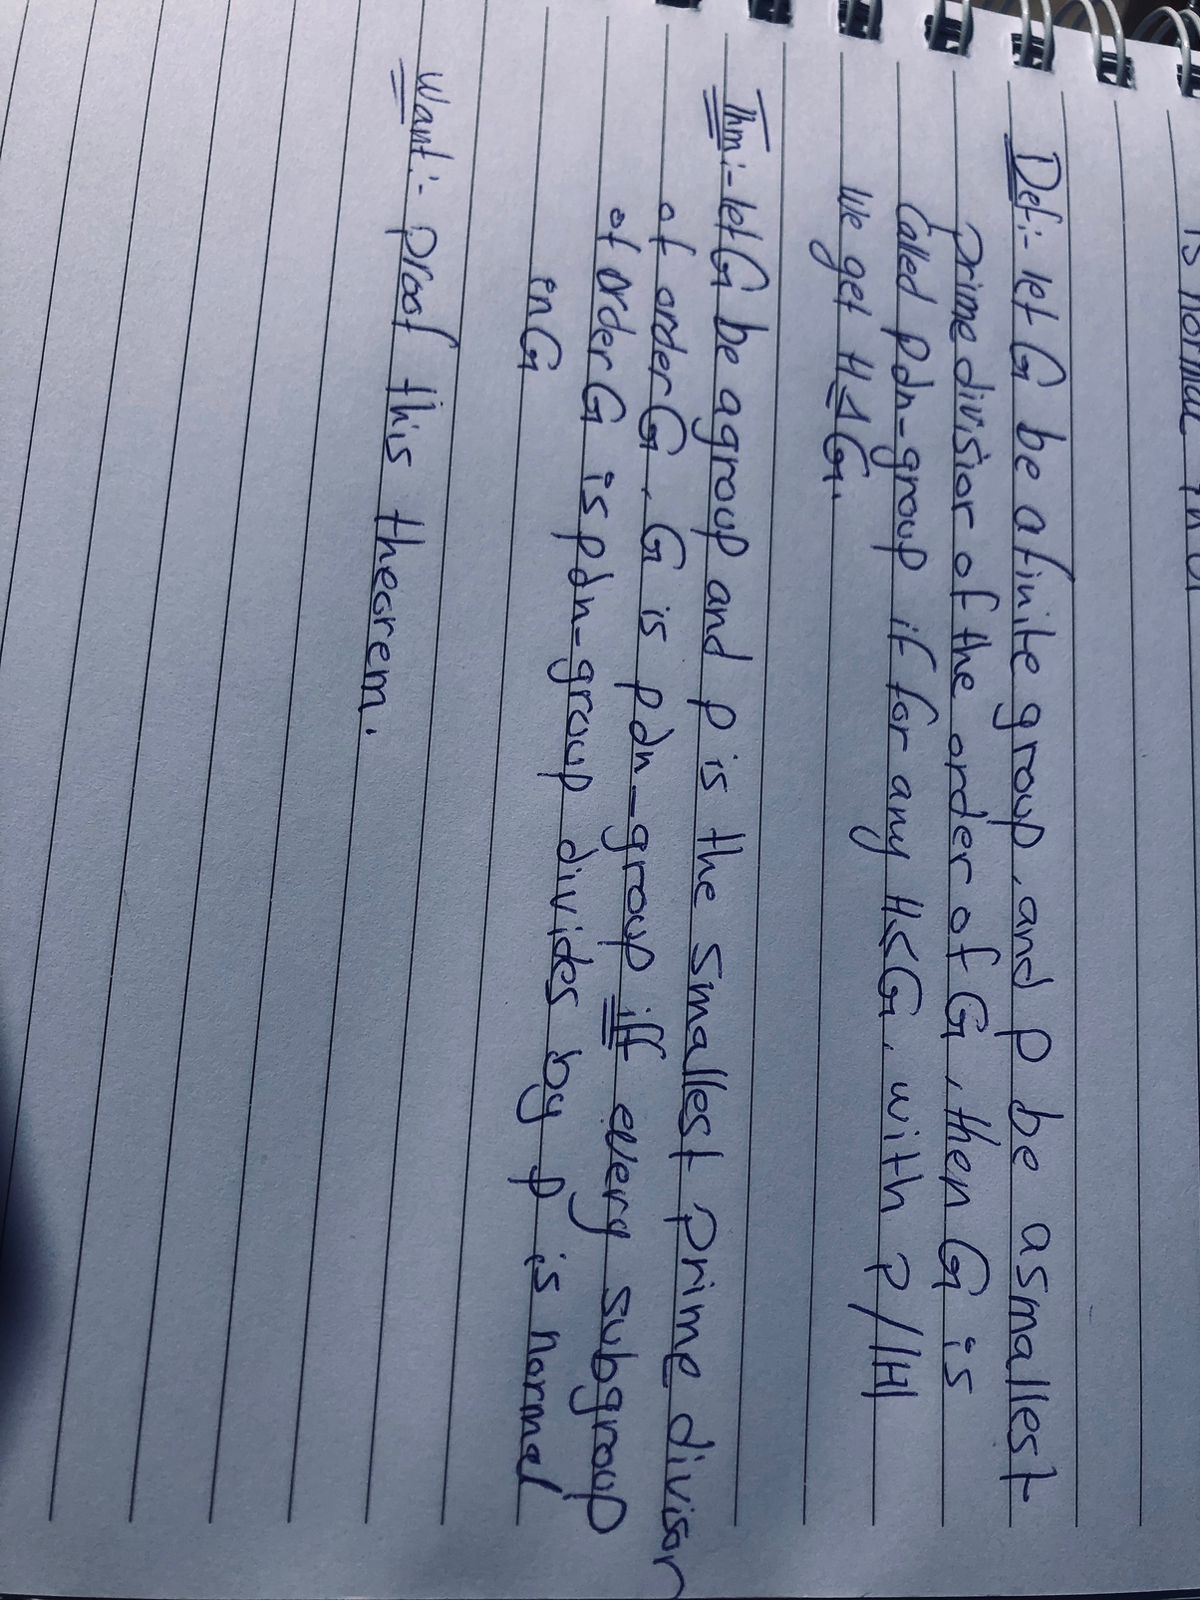 is normal in
Def:- let G be a finite group, and p be a smallest
prime divisior of the order of G, then G is
Called pdn-group if for any H≤G, with p/|H|
We get H⊴G.
Thm:- let G be a group and p is the smallest prime divisor
of order G, G is pdn-group iff every subgroup
of order G is pdn-group divides by p is normal
in G
Want:- proof this theorem.